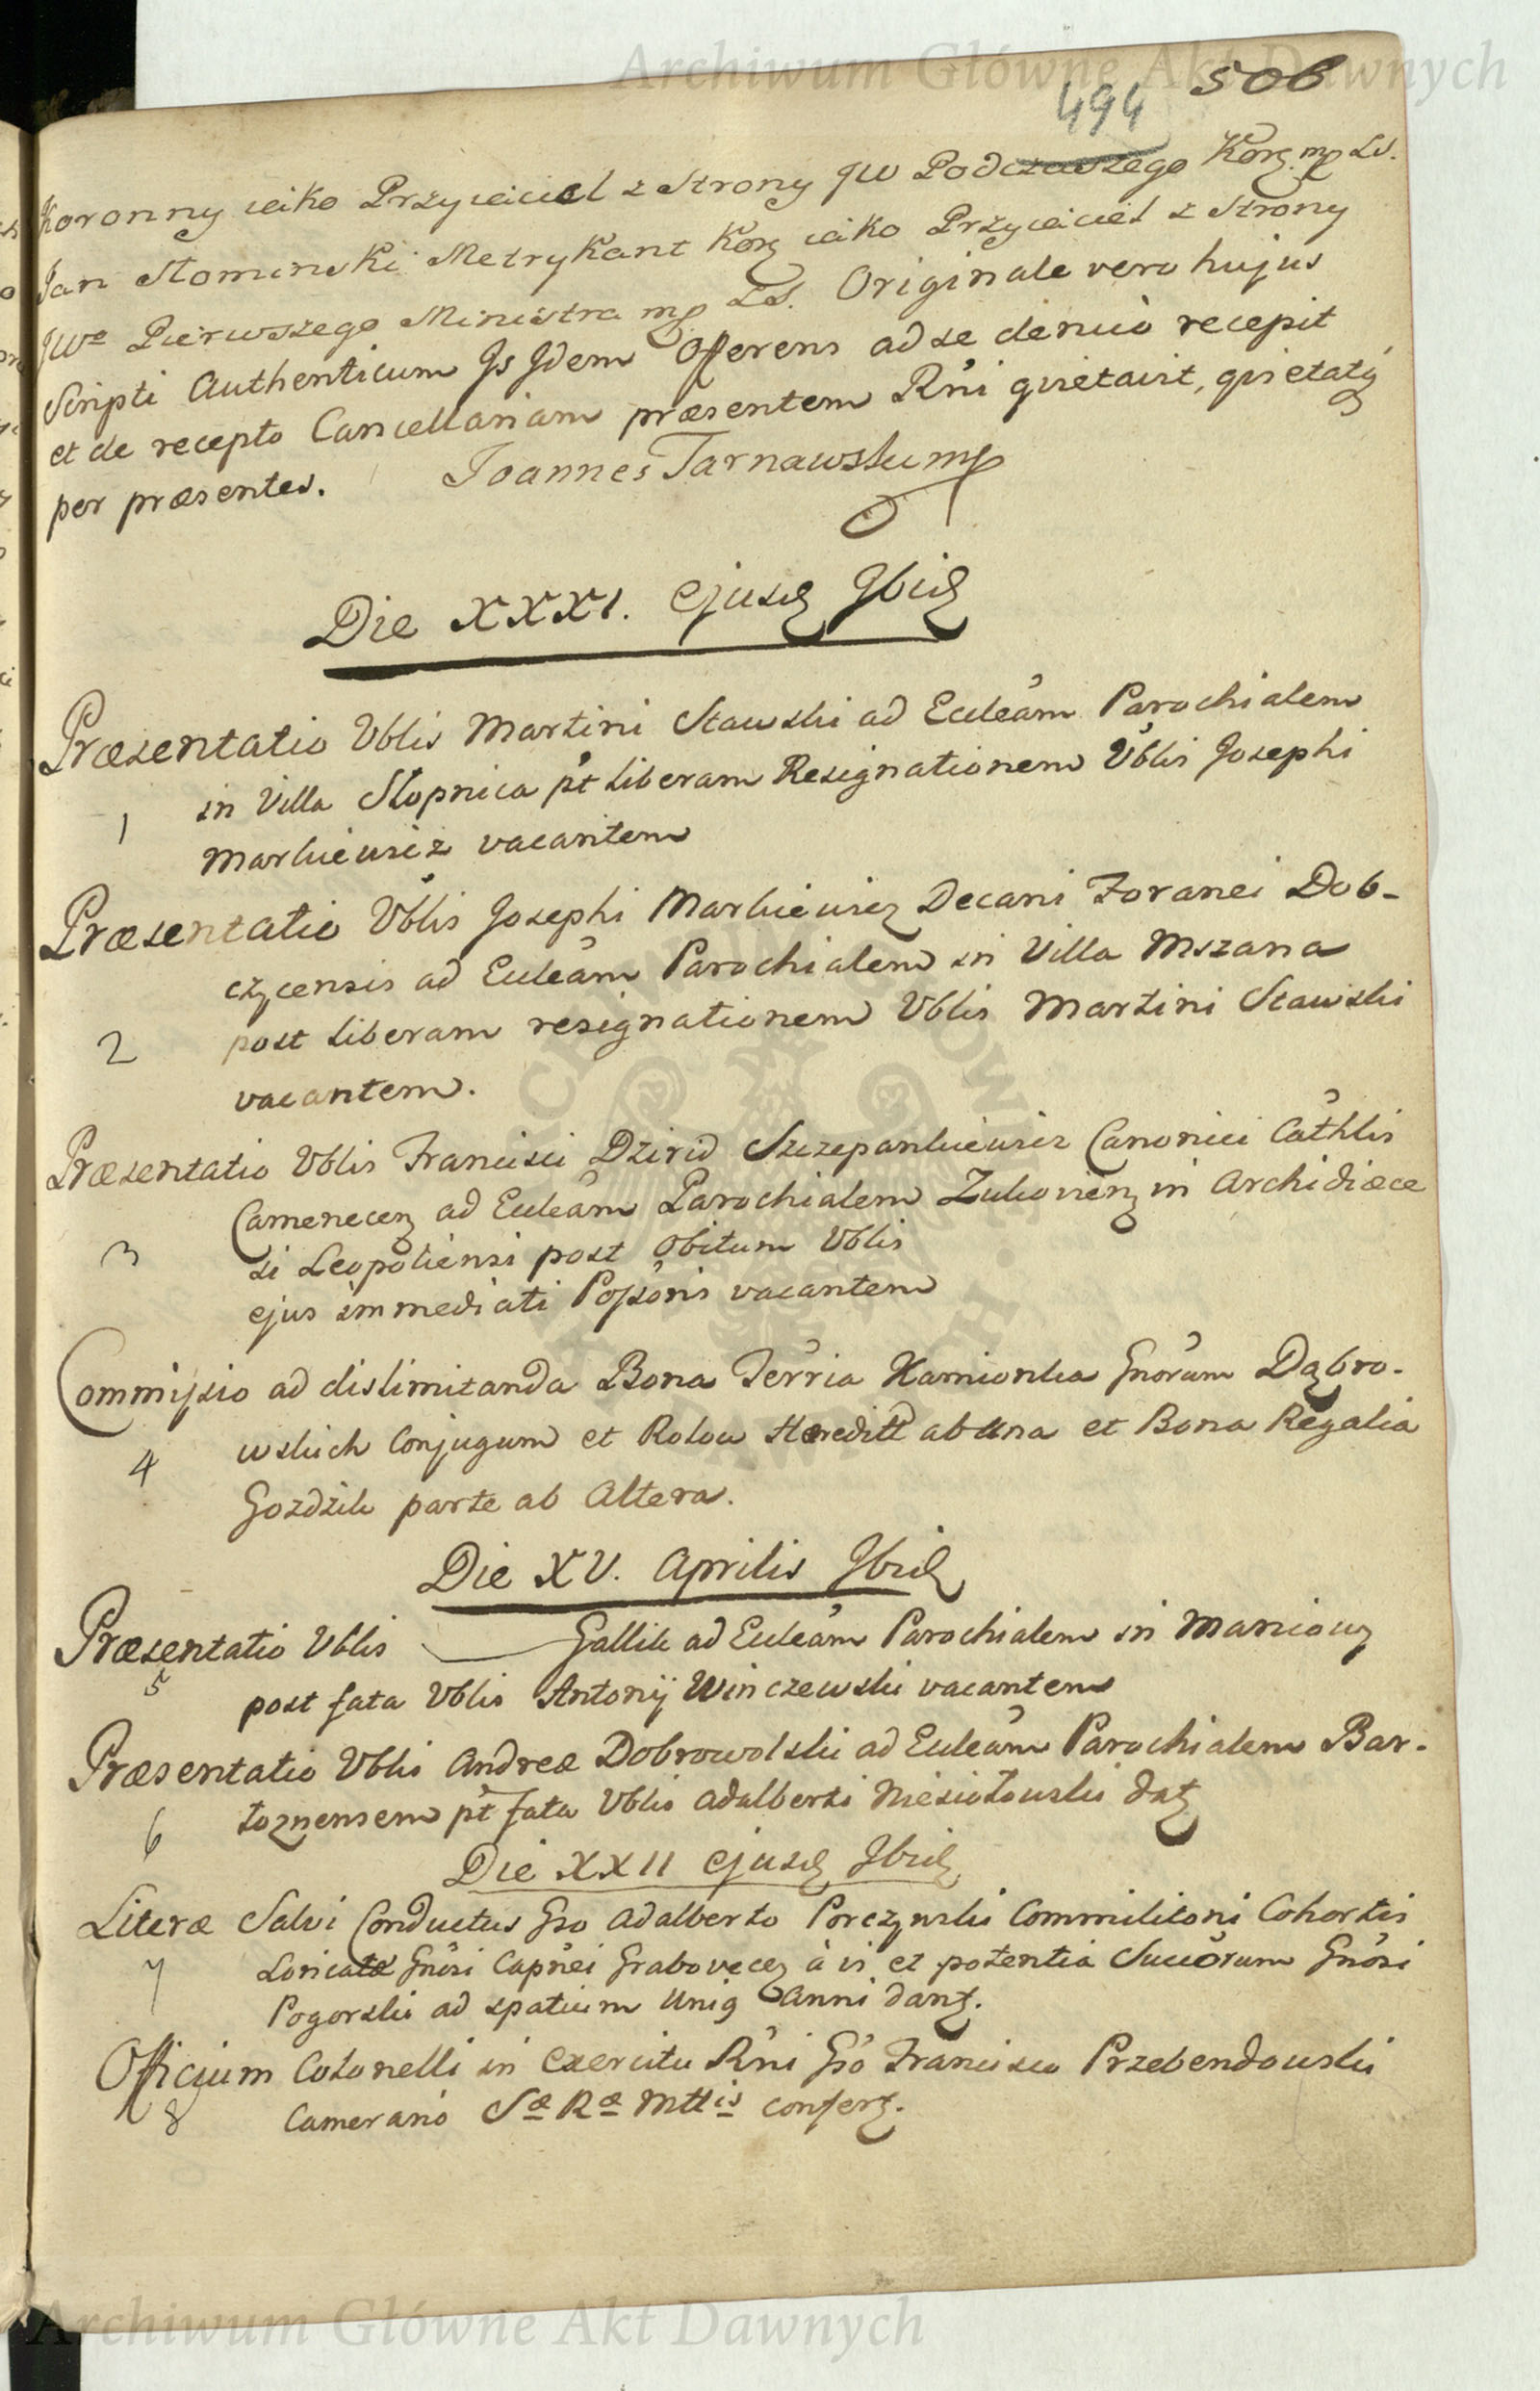 Archiwum Główne Akt Dawnych
494 506
Koronny iako Przyiaciel z Strony JW Podczaszego Korȝ. mp LS.
Jan Słominski Metrykant Korȝ iako Przyiaciel z Strony
JWº Pierwszego Ministra mp LS. Originale vero hujus
Scripti Authenticum Js Jdem Offerens ad se denuò recepit
et de recepto Cancellariam præsentem Rńi quietavit, quietatq́
per præsentes. Joannes Tarnawski mp
Die XXXI. ejusd Ibid
Præsentatio Vblis Martini Stawski ad Eccleām Parochialem
1 in Villa Słopnica pt liberam Resignationem Vblis Josephi
Markiewicz vacantem
Præsentatio Vblis Josephi Markiewicz Decani Foranei Dob-
czycensis ad Eccleām Parochialem in Villa Mszana
2 post liberam resignationem Vblis Martini Stawski
vacantem.
Præsentatio Vblis Francisci Dzirid Szczepankiewicz Canonici Cathlis
Camenecen ad Eccleām Parochialem Zukovien in Archidiœce
3 si Leopoliensi post Obitum Vblis
ejus immediati Possōris vacantem
Commissio ad dislimitanda Bona Terria Kamionka Gnōrum Dąbro-
4 wskich Conjugum et Rokou Hæreditt ab una et Bona Regalia
Gozdzik parte ab Altera.
Die XV. Aprilis Ibid
Præsentatio Vblis — Gallik ad Eccleām Parochialem in Maniowy
5 post fata Vblis Antonij Winczewski vacantem
Præsentatio Vbli Andreæ Dobrowolski ad Eccleām Parochialem Bar-
6 toznensem pt fata Vblis Adalberti Niesiołowski datȝ
Die XXII ejusd Ibid
Literæ Salvi Conductus Gso Adalberto Porczynski Commilitoni Cohortis
7 Loricatæ Gnōsi Capnēi Grabovecen à vi et potentia Succōrum Gnōsi
Pogorski ad spatium Uniȝ Anni dantȝ.
Officium Colonelli in Exercitu Rńi Gsō Francisco Przebendowski
8 Camerario Sæ Ræ Mttis confertȝ.
Archiwum Główne Akt Dawnych